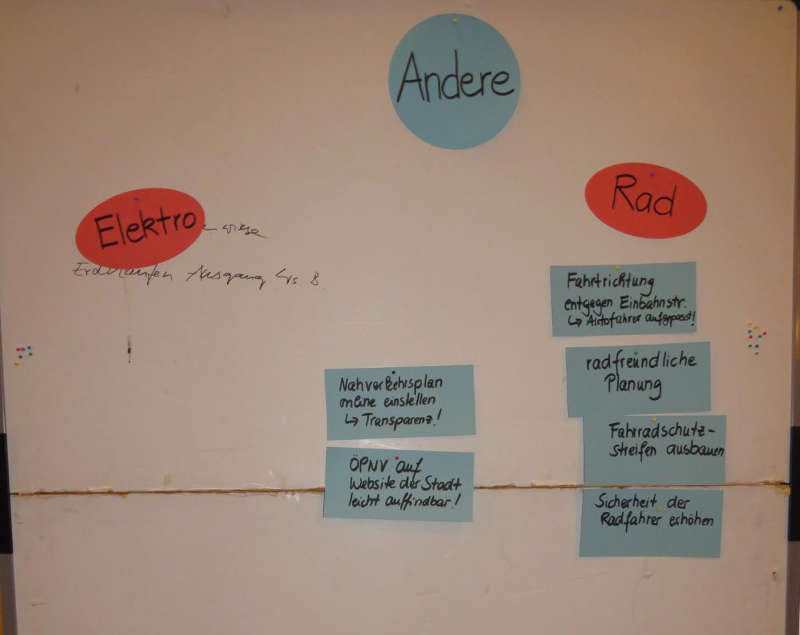 Andere
Elektro
wiese
Erdhaufen Ausgang
Rad
Fahrtrichtung
entgegen Einbahnstr.
↳ Autofahrer aufgepasst!
radfreundliche
Planung
Fahrradschutz-
streifen ausbauen
Sicherheit der
Radfahrer erhöhen
Nahverkehrsplan
online einstellen
↳ Transparenz!
ÖPNV auf
Website der Stadt
leicht auffindbar!